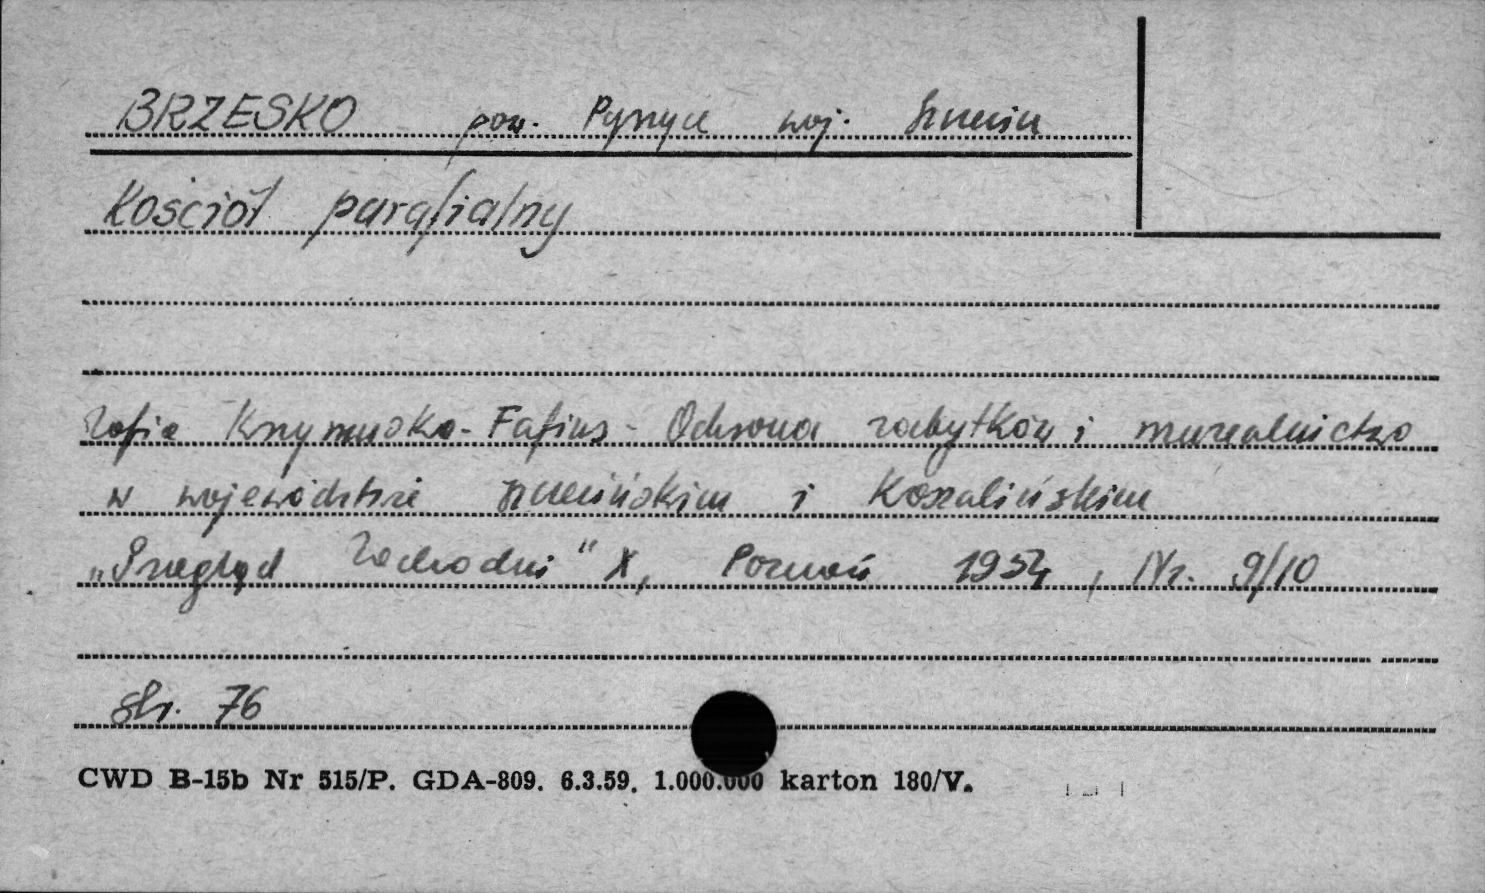 BRZESKO pow. Pyrzyce woj. Szczecin
Kościół parafialny
Zofia Krzymuska-Fafius - Ochrona zabytków i muzealnictwo
w województwie szczecińskim i Koszalińskim
„Przegląd Zachodni" X, Poznań 1954, Nr. 9/10
str. 76
CWD B-15b Nr 515/P. GDA-809. 6.3.59. 1.000.000 karton 180/V.